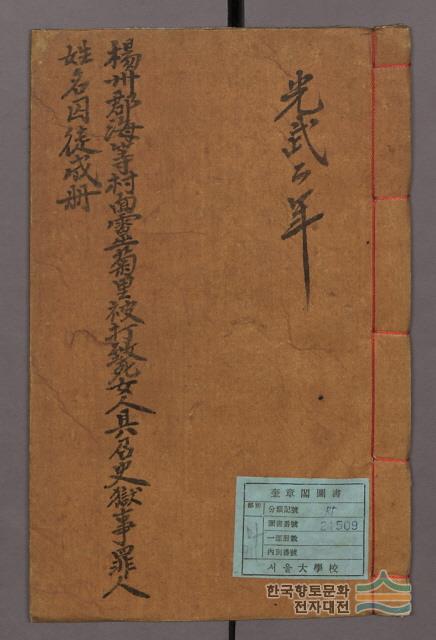 光武年
楊州郡海等村面菊里被打致死女人具召史獄事罪人
姓名囚徒成冊
奎章閣圖書
部別
分類記號
圖書番號 21509
一部冊數
內別番號
서울大學校
한국향토문화
전자대전